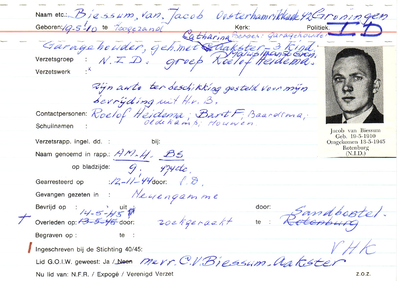 Naam etc: Biessum, van, Jacob Oosterhamrikkade 92 Groningen
Geboren: 19-5-10 te Hoogezand Kerk: Politiek: I.D
Catharina Beroep: Garagehouder
Garagehouder, geh. met Aakster, 3 kind.
Verzetsgroep : N.I.D. groep Roelof Heidema.
Verzetswerk :
Zijn auto ter beschikking gesteld voor mijn
bevrijding uit Hr. B.
Contactpersonen: Roelof Heidema, Bart F, Baardma,
Schuilnamen : Oldenhamh, Houwen
Jacob van Biessum
Geb. 19-5-1910
Omgekomen 13-5-1945
Rotenburg
(N.I.D.)
Verzetsrapp. ingel. dd.: bij:
Naam genoemd in rapp.: AM-H. BS
op bladzijde: 9, 4de
Gearresteerd op :12-11-44 door: S.D.
Gevangen gezeten in : Neuengamme
Bevrijd op : uit : door:
14-5-45 Sandbostel
+ Overleden op: 13-5-45 door: zoekgeraakt te: Rotenburg
Begraven op : te:
Ingeschreven bij de Stichting 40/45: VHK
Lid G.O.I.W. geweest: Ja/Neen Mevr. C.V. Biessum-Aakster
Nu lid van: N.F.R./ Expogé / Verenigd Verzet z.o.z.